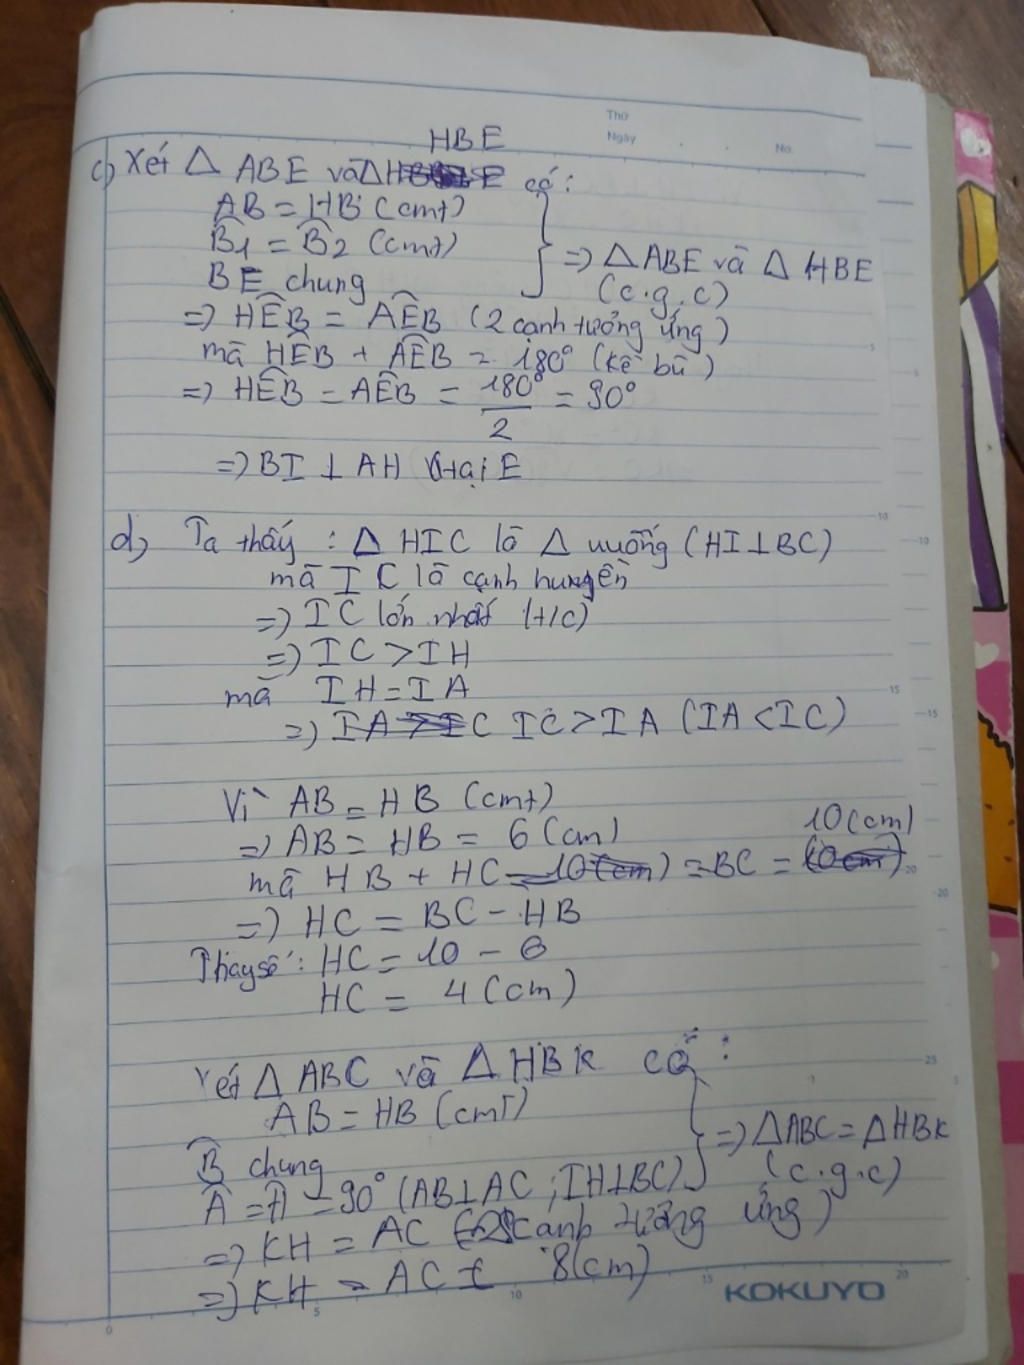 Thứ
Ngày
No.
HBE
c) Xét Δ ABE và Δ E có:
AB = HB (cmt)
B̂1 = B̂2 (cmt)
BE chung
=> Δ ABE và Δ HBE
(c.g.c)
=> HÊB = AÊB (2 cạnh tưởng ứng)
mà HÊB + AÊB = 180° (kề bù)
=> HÊB = AÊB = 180°/2 = 90°
=> BI ⊥ AH tại E
d) Ta thấy : Δ HIC là Δ vuông (HI⊥BC)
mà IC là cạnh huyền
=> IC lớn nhất (t/c)
=> IC > IH
mà IH = IA
=> IA > IC IC > IA (IA < IC)
Vì AB = HB (cmt)
=> AB = HB = 6 (cm)
10 (cm)
mà HB + HC = 10 (cm) = BC = 10 (cm)
=> HC = BC - HB
Thay số: HC = 10 - 6
HC = 4 (cm)
Xét Δ ABC và Δ HBK có :
AB = HB (cmt)
B̂ chung
=> ΔABC = ΔHBK
(c.g.c)
Â = Ĥ = 90° (AB⊥AC ; IH⊥BC)
=> KH = AC (2 cạnh tưởng ứng)
=> KH = AC = 8 (cm)
KOKUYO